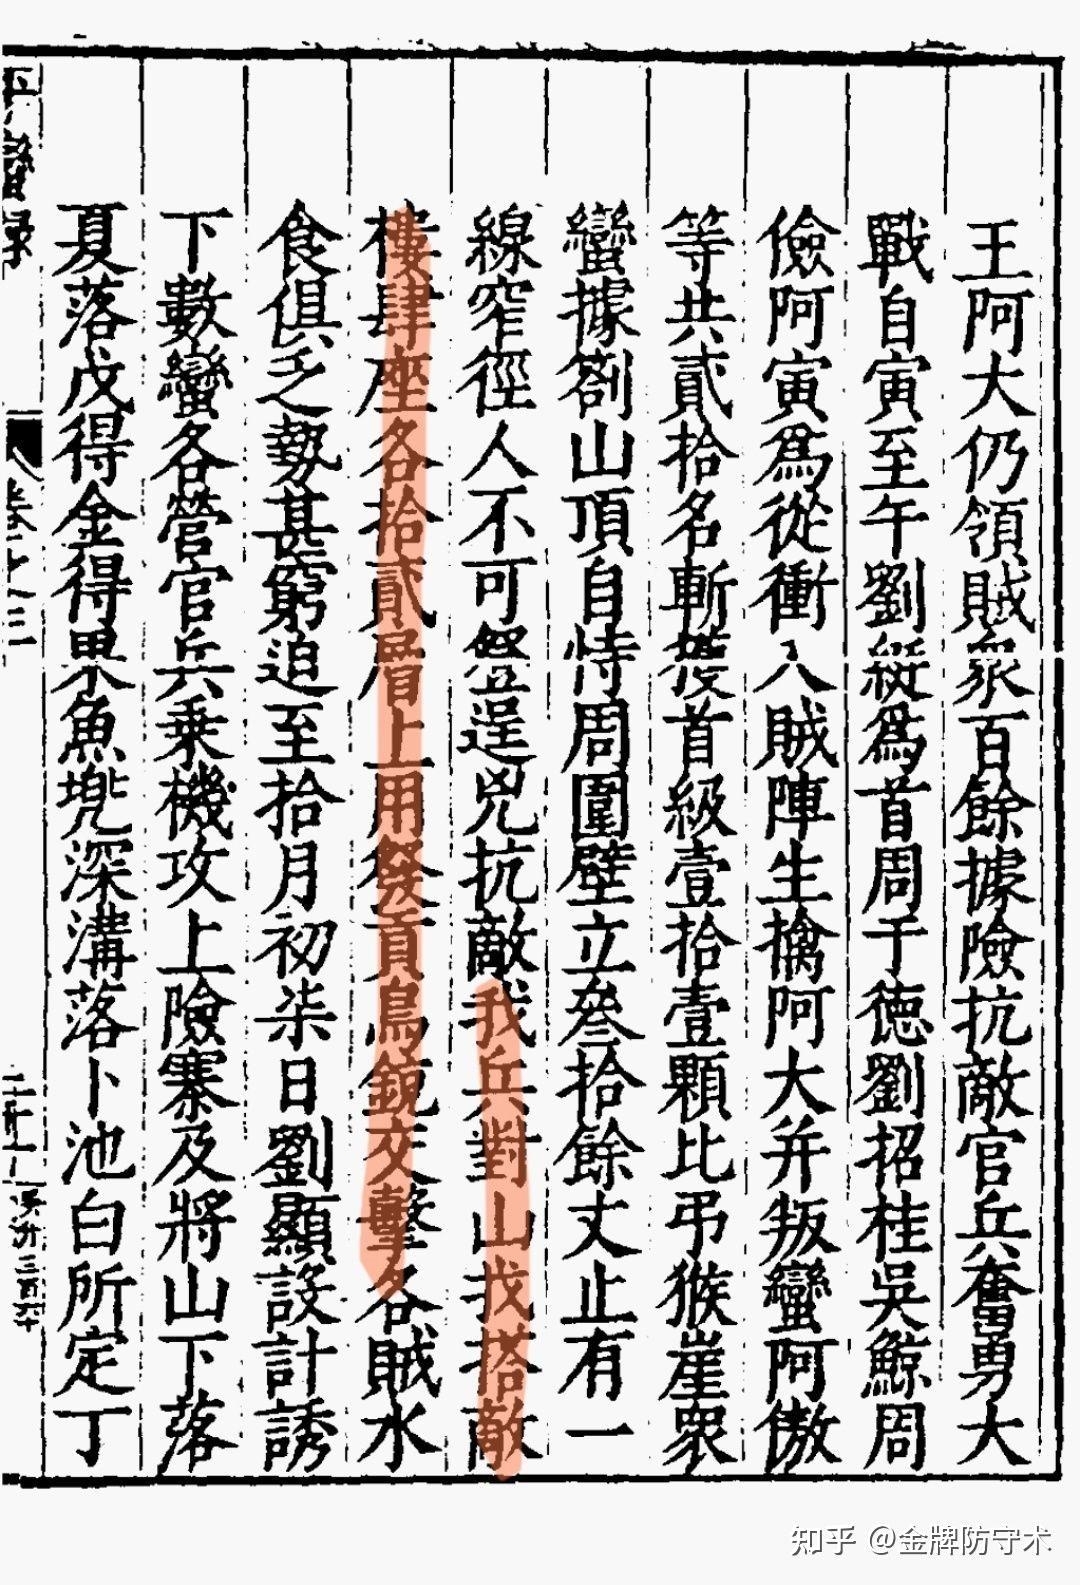 王阿大仍領賊眾百餘據險抗敵官兵奮勇大
戰自寅至午劉綎爲首周于德劉招桂吳鯨周
儉阿寅爲從衝入賊陣生擒阿大并叛蠻阿傲
等共貳拾名斬獲首級壹拾壹顆比弔猴崖衆
蠻據劄山頂自恃周圍壁立叄拾餘丈止有一
線窄徑人不可登逞兇抗敵我兵對山找搭敵
樓肆座各拾貳層上用發貢鳥銃交擊各賊水
食俱乏勢甚窮迫至拾月初柒日劉顯設計誘
下數蠻各營官兵乗機攻上險寨及將山下落
夏落戊得金得果魚兠深溝落卜池白所定丁
平蠻録
卷之三
知乎 @金牌防守术